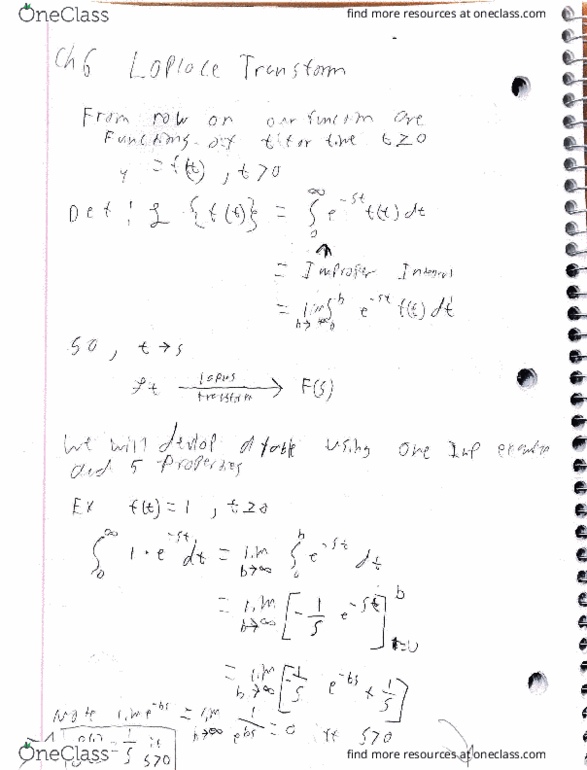 OneClass
find more resources at oneclass.com
Ch 6 Laplace Transform
From now on our function are
Functions of t for time t ≥ 0
y = f(t) , t > 0
Def : ℒ {f(t)} = ∫₀^∞ e^-st f(t) dt
↑
= Improper Integral
= lim b→∞ ∫₀^b e^-st f(t) dt
So , t → s
ft Laplace transform → F(s)
We will develop a table using one Imp
and 5 Properties
Ex f(t) = 1 , t ≥ 0
∫₀^∞ 1 · e^-st dt = lim b→∞ ∫₀^b e^-st dt
= lim b→∞ [ -1/s e^-st ]^b t=0
= lim b→∞ [ -1/s e^-bs + 1/s ]
Note lim e^-bs = lim b→∞ 1/e^bs = 0 if s>0
= 1/s if s>0
OneClass
find more resources at oneclass.com